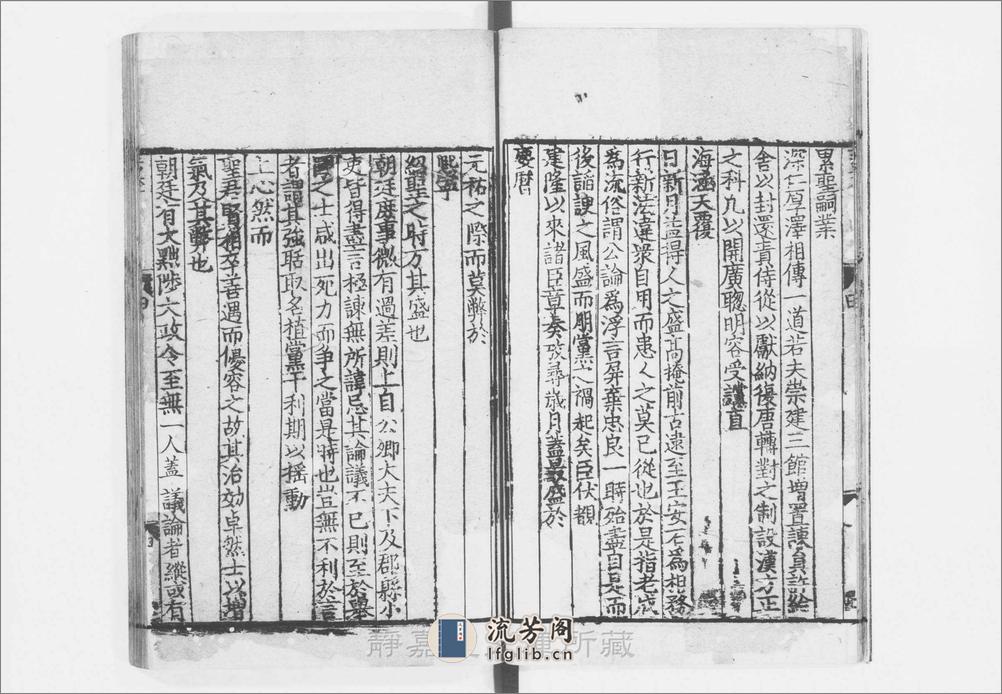 累聖嗣業
深仁厚澤相傳一道若夫崇建三館増置諫員許給
舍以封還責侍從以獻納復唐轉對之制設漢方正
之科凡以開廣聰明容受讜直
海涵天覆
日新月益得人之盛高掩前古逺至王安石爲相務
行新法違衆自用而患人之莫已從也於是指老成
爲流俗謂公論爲浮言屏棄忠良一時殆盡自是而
後謟諛之風盛而朋黨之禍起矣臣伏覩
建隆以來諸臣章奏攷尋歳月蓋最盛於
慶曆
元祐之際而莫弊於
熙寧
紹聖之時方其盛也
朝廷庶事微有過差則上自公卿大夫下及郡縣小
吏皆得盡言極諫無所諱忌其論議不已則至於舉
國之士咸出死力而爭之當是時也豈無不利於言
者謂其強聒取名植黨干利期以揺動
上心然而
聖君賢相卒善遇而優容之故其治効卓然士以増
氣乃其弊也
朝廷有大黜陟大政令至無一人蓋議論者縱或有
靜嘉
所藏
流芳阁
lfglib.cn